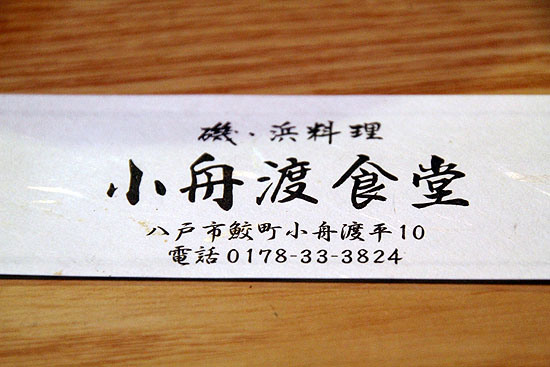 磯・浜料理
小舟渡食堂
八戸市鮫町小舟渡平10
電話0178-33-3824